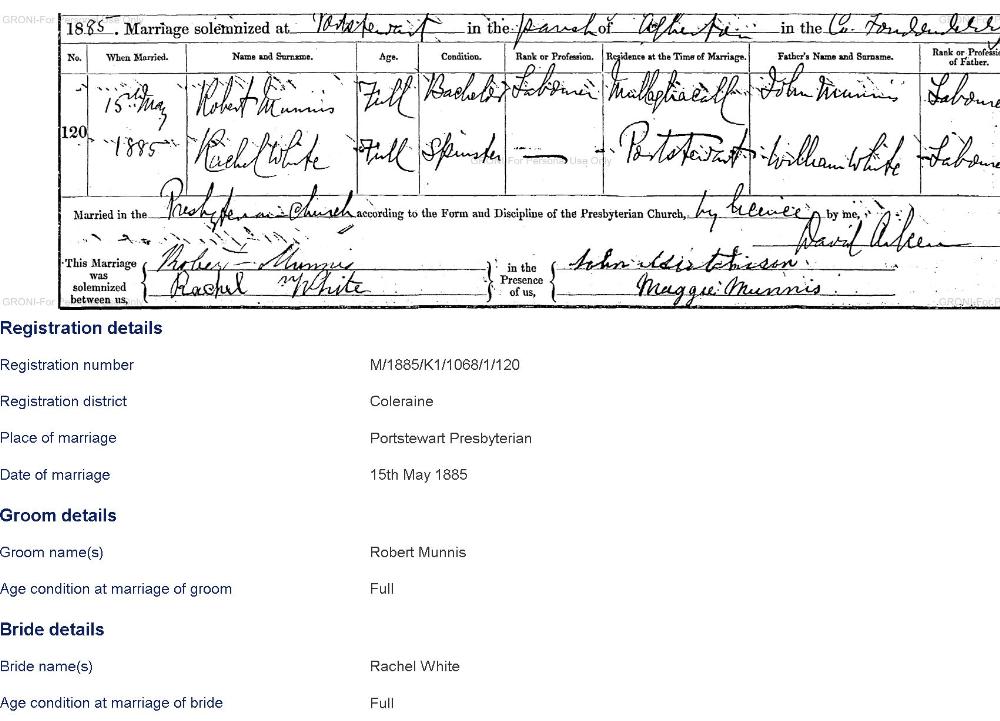 1885. Marriage solemnized at Portstewart in the parish of Agherton in the Co. Londonderry
No. When Married. Name and Surname. Age. Condition. Rank or Profession. Residence at the Time of Marriage. Father's Name and Surname. Rank or Profession of Father.
15th May Robert Munnis Full Bachelor Labourer John Munnis Laboure
120
1885 Rachel White Full Spinster — Portstewart William White Laboure
Married in the Presbyterian Church according to the Form and Discipline of the Presbyterian Church, by licence by me,
David
This Marriage was solemnized between us, Robert Munnis in the Presence of us, John
Rachel White Maggie Munnis
GRONI-For Personal Use Only
Registration details
Registration number M/1885/K1/1068/1/120
Registration district Coleraine
Place of marriage Portstewart Presbyterian
Date of marriage 15th May 1885
Groom details
Groom name(s) Robert Munnis
Age condition at marriage of groom Full
Bride details
Bride name(s) Rachel White
Age condition at marriage of bride Full